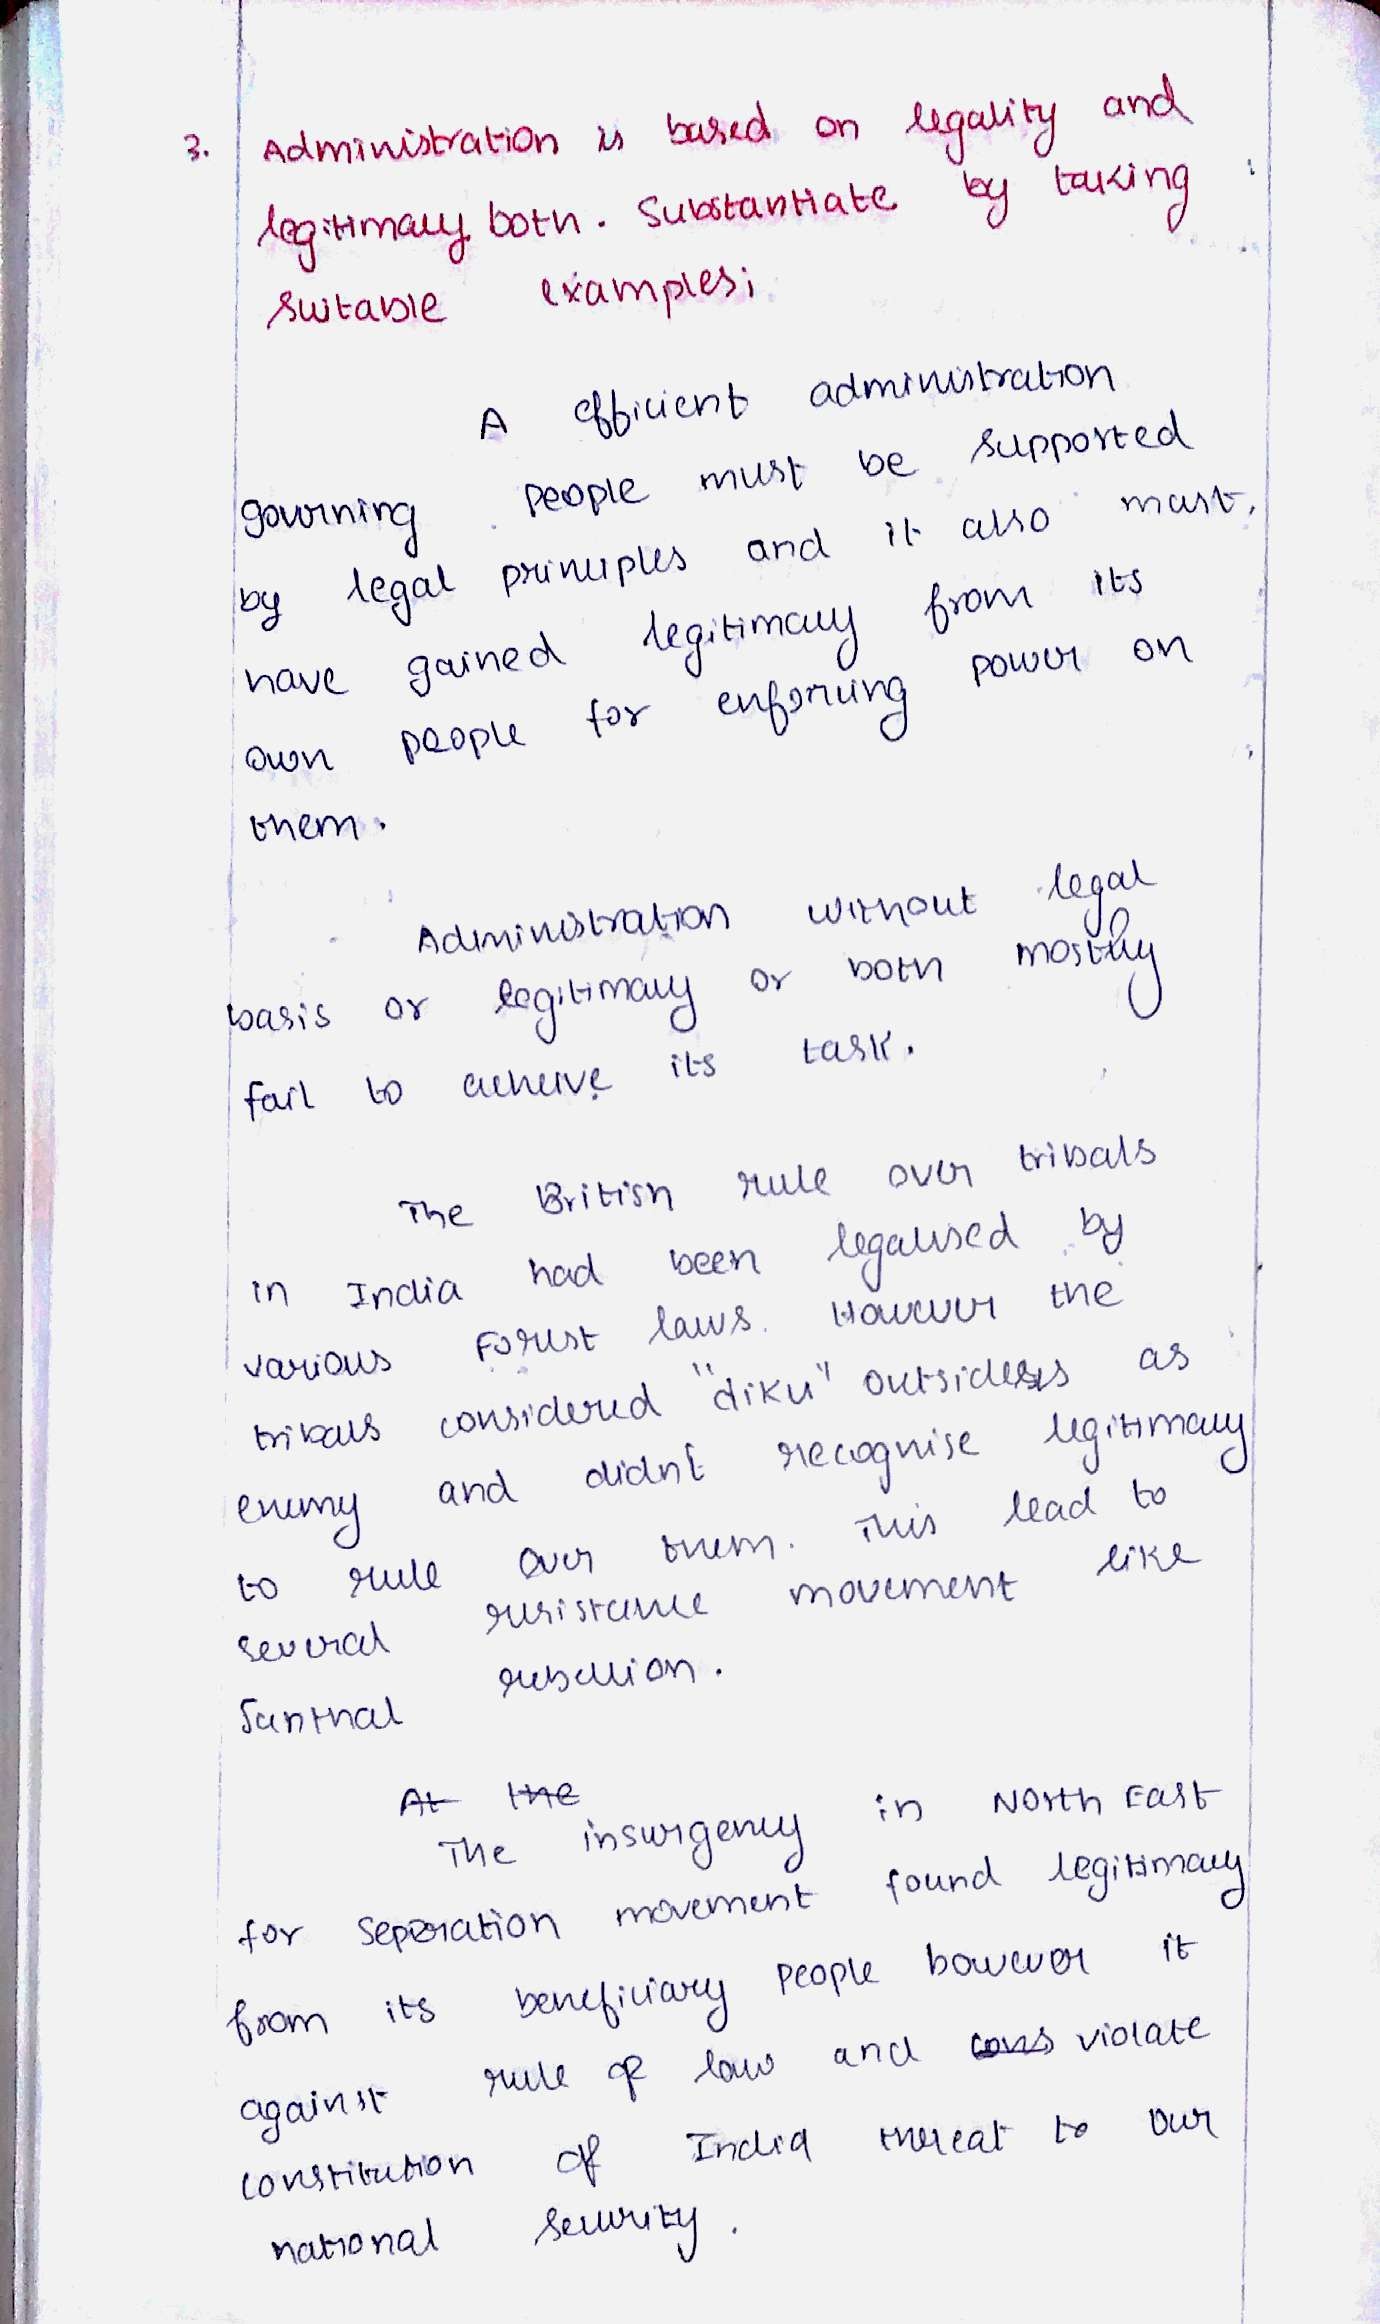 3. Administration is based on legality and
legitimacy both. Substantiate by taking
suitable examples;
A efficient administration
governing people must be supported
by legal principles and it also must
have gained legitimacy from its
own people for enforcing power on
them.
Administration without legal
basis or legitimacy or both mostly
fail to acheive its task.
The British rule over tribals
in India had been legalised by
various Forest laws. However the
tribals considered "diku" outsiders as
enemy and didnt recognise legitimacy
to rule over them. This lead to
several resistance movement like
Santhal rebellion.
At the
The insurgency in North East
for seperation movement found legitimacy
from its beneficiary people however it
against rule of law and cons violate
constitution of India threat to our
national security.